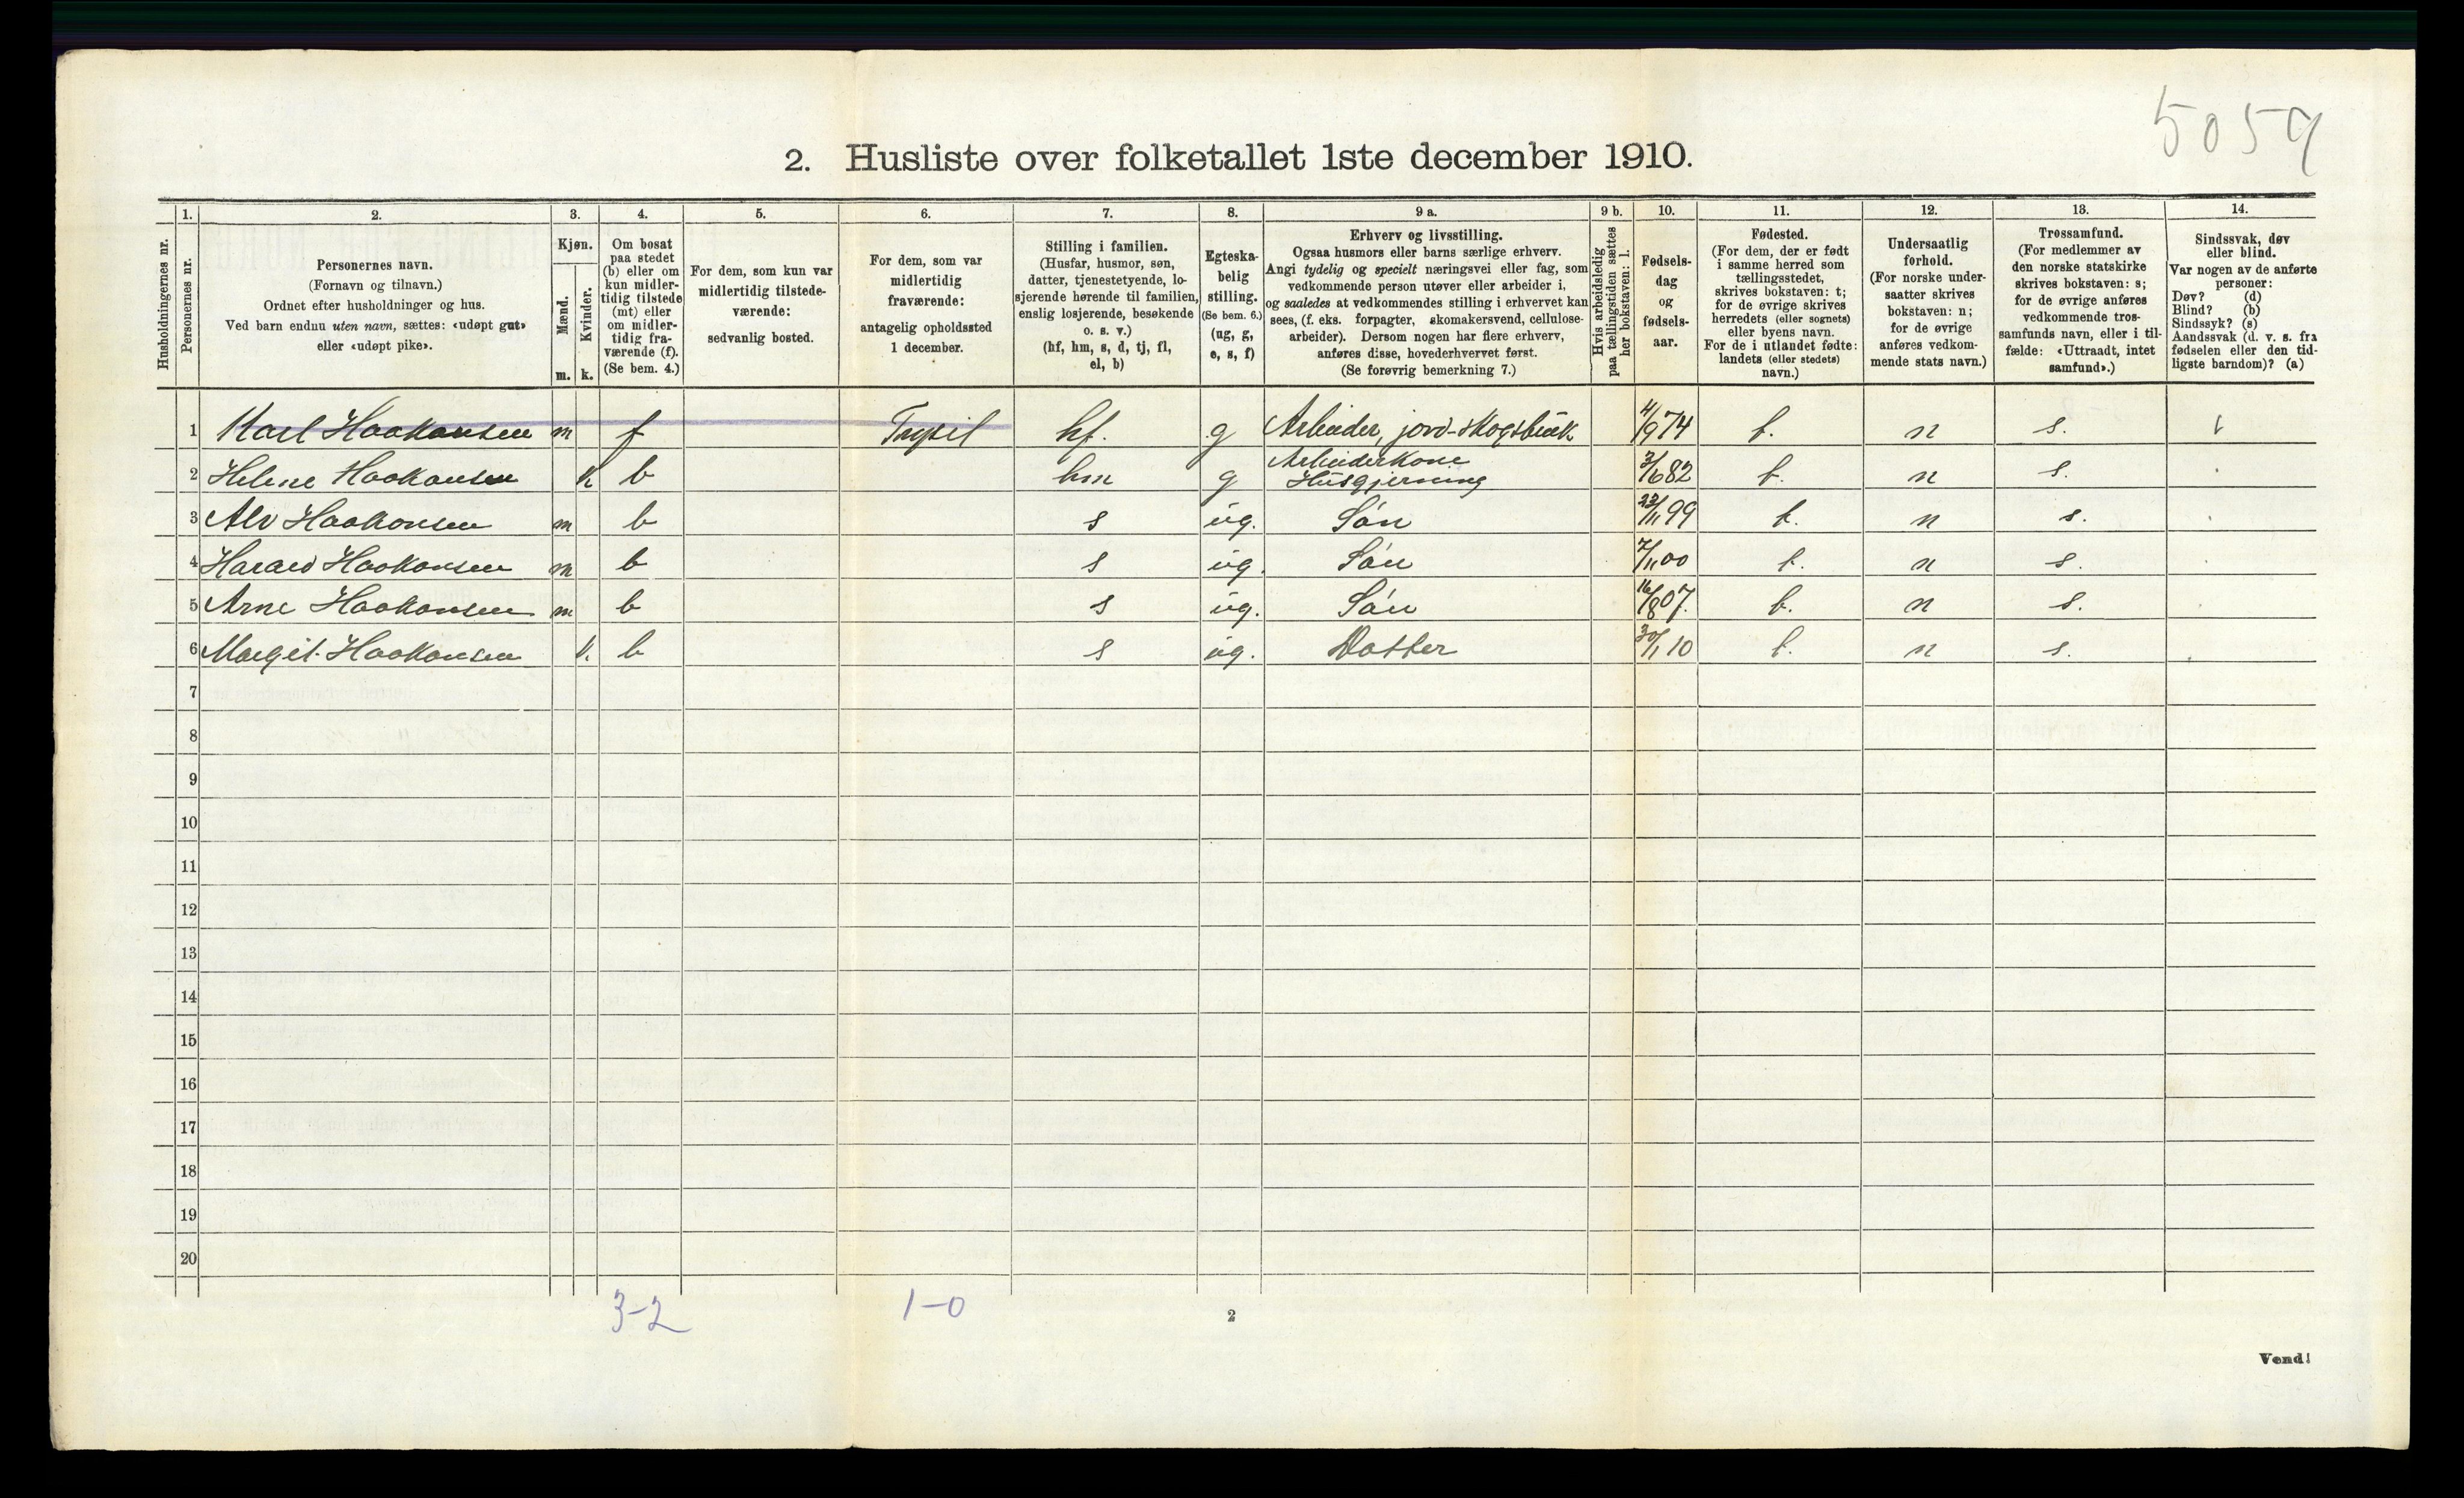 5059
2. Husliste over folketallet 1ste december 1910.
Husholdningernes nr.
1.
Personernes nr.
2.
Personernes navn.
(Fornavn og tilnavn.)
Ordnet efter husholdninger og hus.
Ved barn endnu uten navn, sættes: «udøpt gut»
eller «udøpt pike».
3.
Kjøn.
Mænd.
Kvinder.
m. k.
4.
Om bosat
paa stedet
(b) eller om
kun midler-
tidig tilstede
(mt) eller
om midler-
tidig fra-
værende (f).
(Se bem. 4.)
5.
For dem, som kun var
midlertidig tilstede-
værende:
sedvanlig bosted.
6.
For dem, som var
midlertidig
fraværende:
antagelig opholdssted
1 december.
7.
Stilling i familien.
(Husfar, husmor, søn,
datter, tjenestetyende, lo-
sjerende hørende til familien,
enslig losjerende, besøkende
o. s. v.)
(hf, hm, s, d, tj, fl,
el, b)
8.
Egteska-
belig
stilling.
(Se bem. 6.)
(ug, g,
e, s, f)
9 a.
Erhverv og livsstilling.
Ogsaa husmors eller barns særlige erhverv.
Angi tydelig og specielt næringsvei eller fag, som
vedkommende person utøver eller arbeider i,
og saaledes at vedkommendes stilling i erhvervet kan
sees, (f. eks. forpagter, skomakersvend, cellulose-
arbeider). Dersom nogen har flere erhverv,
anføres disse, hovederhvervet først.
(Se forøvrig bemerkning 7.)
9 b.
Hvis arbeidsledig
paa tællingstiden sættes
her bokstaven: l.
10.
Fødsels-
dag
og
fødsels-
aar.
11.
Fødested.
(For dem, der er født
i samme herred som
tællingsstedet,
skrives bokstaven: t;
for de øvrige skrives
herredets (eller sognets)
eller byens navn.
For de i utlandet fødte:
landets (eller stedets)
navn.)
12.
Undersaatlig
forhold.
(For norske under-
saatter skrives
bokstaven: n;
for de øvrige
anføres vedkom-
mende stats navn.)
13.
Trossamfund.
(For medlemmer av
den norske statskirke
skrives bokstaven: s;
for de øvrige anføres
vedkommende tros-
samfunds navn, eller i til-
fælde: «Uttraadt, intet
samfund».)
14.
Sindssvak, døv
eller blind.
Var nogen av de anførte
personer:
Døv? (d)
Blind? (b)
Sindssyk? (s)
Aandssvak (d. v. s. fra
fødselen eller den tid-
ligste barndom)? (a)
1 Karl Haakansen m f Trysil hf. g Arbeider, jord-skogsbruk 4/9 74 t. n s.
2 Helene Haakansen k b hm g Arbeiderkone Husgjerning 3/6 82 t. n s.
3 Alv Haakonsen m b s ug. Søn 23/11 99 t. n s.
4 Harald Haakansen m b s ug. Søn 7/11 00 t. n s.
5 Arne Haakansen m b s ug. Søn 16/8 07. t. n s.
6 Margit Haakansen k. b s ug. Datter 30/1 10 t. n s.
7
8
9
10
11
12
13
14
15
16
17
18
19
20
3-2 1-0
2
Vend!